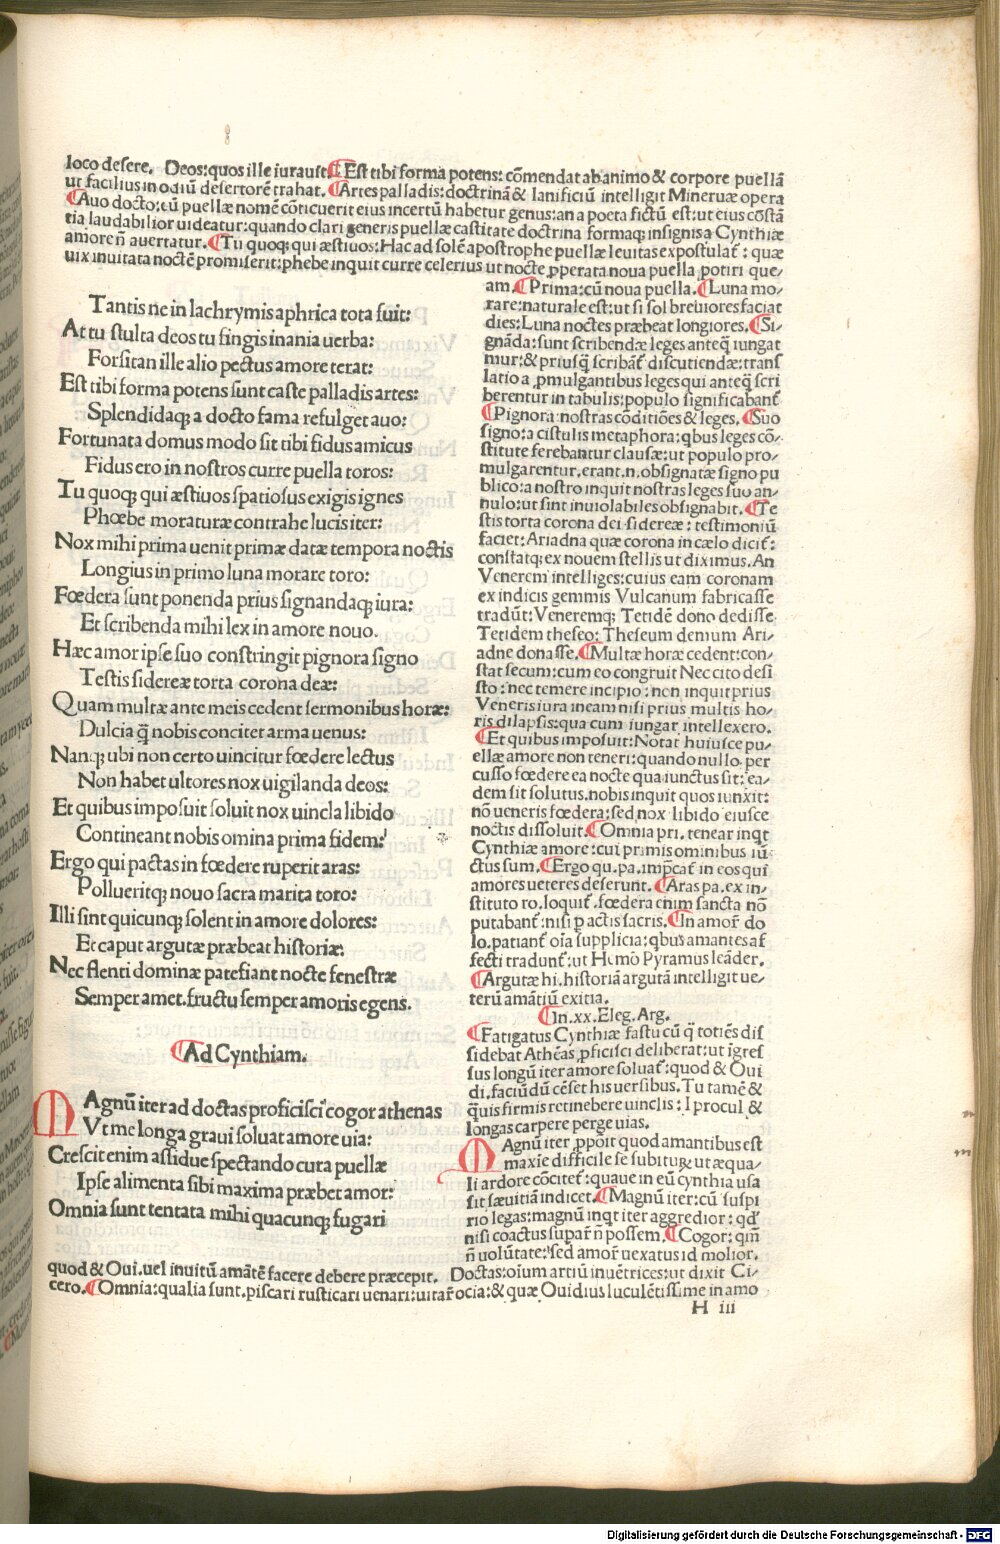 loco deſere. Deos:quos ille iurauit.¶Eſt tibi forma potens: cōmendat ab animo & corpore puellā
ut facilius in odiū deſertorē trahat. ¶Artes palladis:doctrinā & lanificiū intelligit Mineruæ opera
¶Auo docto:cū puellæ nomē cōticuerit eius incertū habetur genus:an a poeta fictū eſt:ut eius cōſtā
tia laudabilior uideatur:quando clari generis puellæ caſtitate doctrina formaq; inſignis a Cynthiæ
amore n̄ auertatur.¶Tu quoq; qui æſtiuos:Hac ad ſolē apoſtrophe puellæ leuitas expoſtulat̄: quæ
uix inuitata noctē promiſerit:phebe inquit curre celerius ut nocte ꝓperata noua puella potiri que⸗
am.¶Prima:cū noua puella.¶Luna mo⸗
rare:naturale eſt:ut ſi ſol breuiores faciat
dies:Luna noctes præbeat longiores.¶Si⸗
gnāda:ſunt ſcribendæ leges anteq̄ iungat
mur:& priuſq̄ ſcribāt̄ diſcutiendæ:tranſ
latio a ꝓmulgantibus leges qui anteq̄ ſcri
berentur in tabulis:populo ſignificabant̄
¶Pignora:noſtras cōditiōes & leges.¶Suo
ſigno:a ciſtulis metaphora:qbus leges cō⸗
ſtitute ferebantur clauſæ:ut populo pro⸗
mulgarentur.erant.n.obſignatæ ſigno pu
blico:a noſtro inquit noſtras leges ſuo an⸗
nulo:ut ſint inuiolabiles obſignabit.¶Te
ſtis torta corona dei ſidereæ: teſtimoniū
faciet:Ariadna quæ corona in cælo dicit̄:
conſtatq; ex nouem ſtellis ut diximus.An
Venerem intelliges:cuius eam coronam
ex indicis gemmis Vulcanum fabricaſſe
tradūt:Veneremq; Tetidē dono dediſſe
Tetidem theſeo: Theſeum demum Ari⸗
adne donaſſe.¶Multæ horæ cedent:con⸗
ſtat ſecum:cum eo congruit Nec cito deſi
ſto:nec temere incipio:nen inquit prius
Veneris iura ineam niſi prius multis ho⸗
ris dilapſis:qua cum iungar intellexero.
¶Et quibus impoſuit:Notat huiuſce pu⸗
ellæ amore non teneri:quando nullo per
cuſſo fœdere ea nocte qua iunctus ſit:ea⸗
dem ſit ſolutus.nobis inquit quos iunxit:
nō ueneris fœdera:ſed nox libido eiuſce
noctis diſſoluit.¶Omnia pri.tenear inqt
Cynthiæ amore:cui primis ominibus iū⸗
ctus ſum.¶Ergo qu.pa.imp̄cat̄ in eos qui
amores ueteres deſerunt. ¶Aras pa.ex in⸗
ſtituto ro.loquit̄.fœdera enim ſancta nō
putabant̄:niſi ꝑactis ſacris.¶In amor̄ do
lo.patiant̄ oīa ſupplicia:qbus amantes af
fecti tradunt̄:ut Hemō Pyramus leāder.
¶Argutæ hi.hiſtoriā argutā intelligit ue⸗
terū amātiū exitia.
¶In.xx.Eleg.Arg.
¶Fatigatus Cynthiæ faſtu cū q̄ totiēs diſ
ſidebat Athēas ꝓficiſci deliberat:ut īgreſ
ſus longū iter amore ſoluat̄:quod & Oui
di.faciūdū cēſet his uerſibus.Tu tamē &
q̄uis firmis retinebere uinclis:I procul &
longas carpere perge uias.
Magnū iter ꝓpoit quod amantibus eſt
maxie difficile ſe ſubituꝝ ut æqua⸗
li ardore cōcitet̄:quaue in eū cynthia uſa
ſit ſæuitiā indicet.¶Magnū iter:cū ſuſpi
rio legas:magnū inqt iter aggredior:qd̓
niſi coactus ſupar̄ n̄ poſſem.¶Cogor:qm̄
n̄ uolūtate:ſed amor̄ uexatus id molior.
Tantis ne in lachrymis aphrica tota fuit:
At tu ſtulta deos tu fingis inania uerba:
Forſitan ille alio pectus amore terat:
Eſt tibi forma potens ſunt caſte palladis artes:
Splendidaq; a docto fama refulget auo:
Fortunata domus modo ſit tibi fidus amicus
Fidus ero in noſtros curre puella toros:
Tu quoq; qui æſtiuos ſpatioſus exigis ignes
Phœbe moraturæ contrahe lucis iter:
Nox mihi prima uenit primæ datæ tempora noctis
Longius in primo luna morare toro:
Fœdera ſunt ponenda prius ſignandaq; iura:
Et ſcribenda mihi lex in amore nouo.
Hæc amor ipſe ſuo conſtringit pignora ſigno
Teſtis ſidereæ torta corona deæ:
Quam multæ ante meis cedent ſermonibus horæ:
Dulcia q̄ nobis concitet arma uenus:
Nanq; ubi non certo uincitur fœdere lectus
Non habet ultores nox uigilanda deos:
Et quibus impoſuit ſoluit nox uincla libido
Contineant nobis omina prima fidem:
Ergo qui pactas in fœdere ruperit aras:
Pollueritq; nouo ſacra marita toro:
Illi ſint quicunq; ſolent in amore dolores:
Et caput argutæ præbeat hiſtoriæ.
Nec flenti dominæ patefiant nocte feneſtræ
Semper amet.fructu ſemper amoris egens.
¶Ad Cynthiam.
Magnū iter ad doctas proficiſci cogor athenas
Vt me longa graui ſoluat amore uia:
Creſcit enim aſſidue ſpectando cura puellæ
Ipſe alimenta ſibi maxima præbet amor:
Omnia ſunt tentata mihi quacunq; fugari
quod & Oui.uel inuitū amātē facere debere præcepit. Doctas:oīum artiū inuētrices:ut dixit Ci⸗
cero.¶Omnia:qualia ſunt.piſcari ruſticari uenari:uitar̄ ocia:& quæ Ouidius luculētiſſime in amo
H iii